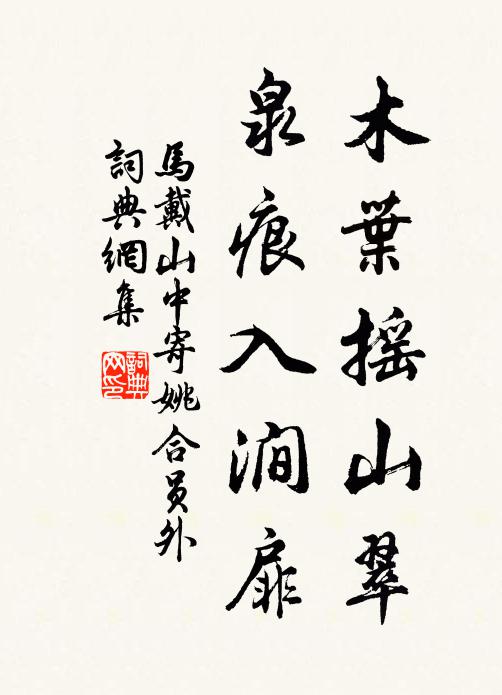 木葉摇山翠
泉痕入澗扉
馬戴山中寄姚合員外
詞典網集
詞典
网印